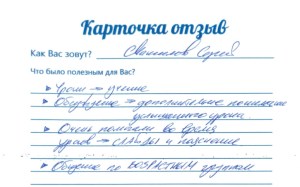 Карточка отзыв
Как Вас зовут? Сергей
Что было полезным для Вас?
Уроки → учение
Обсуждение → дополнительное понимание
услышанного урока
Очень помогали во время
уроков → слайды и пояснение
Общение по возрастным группам